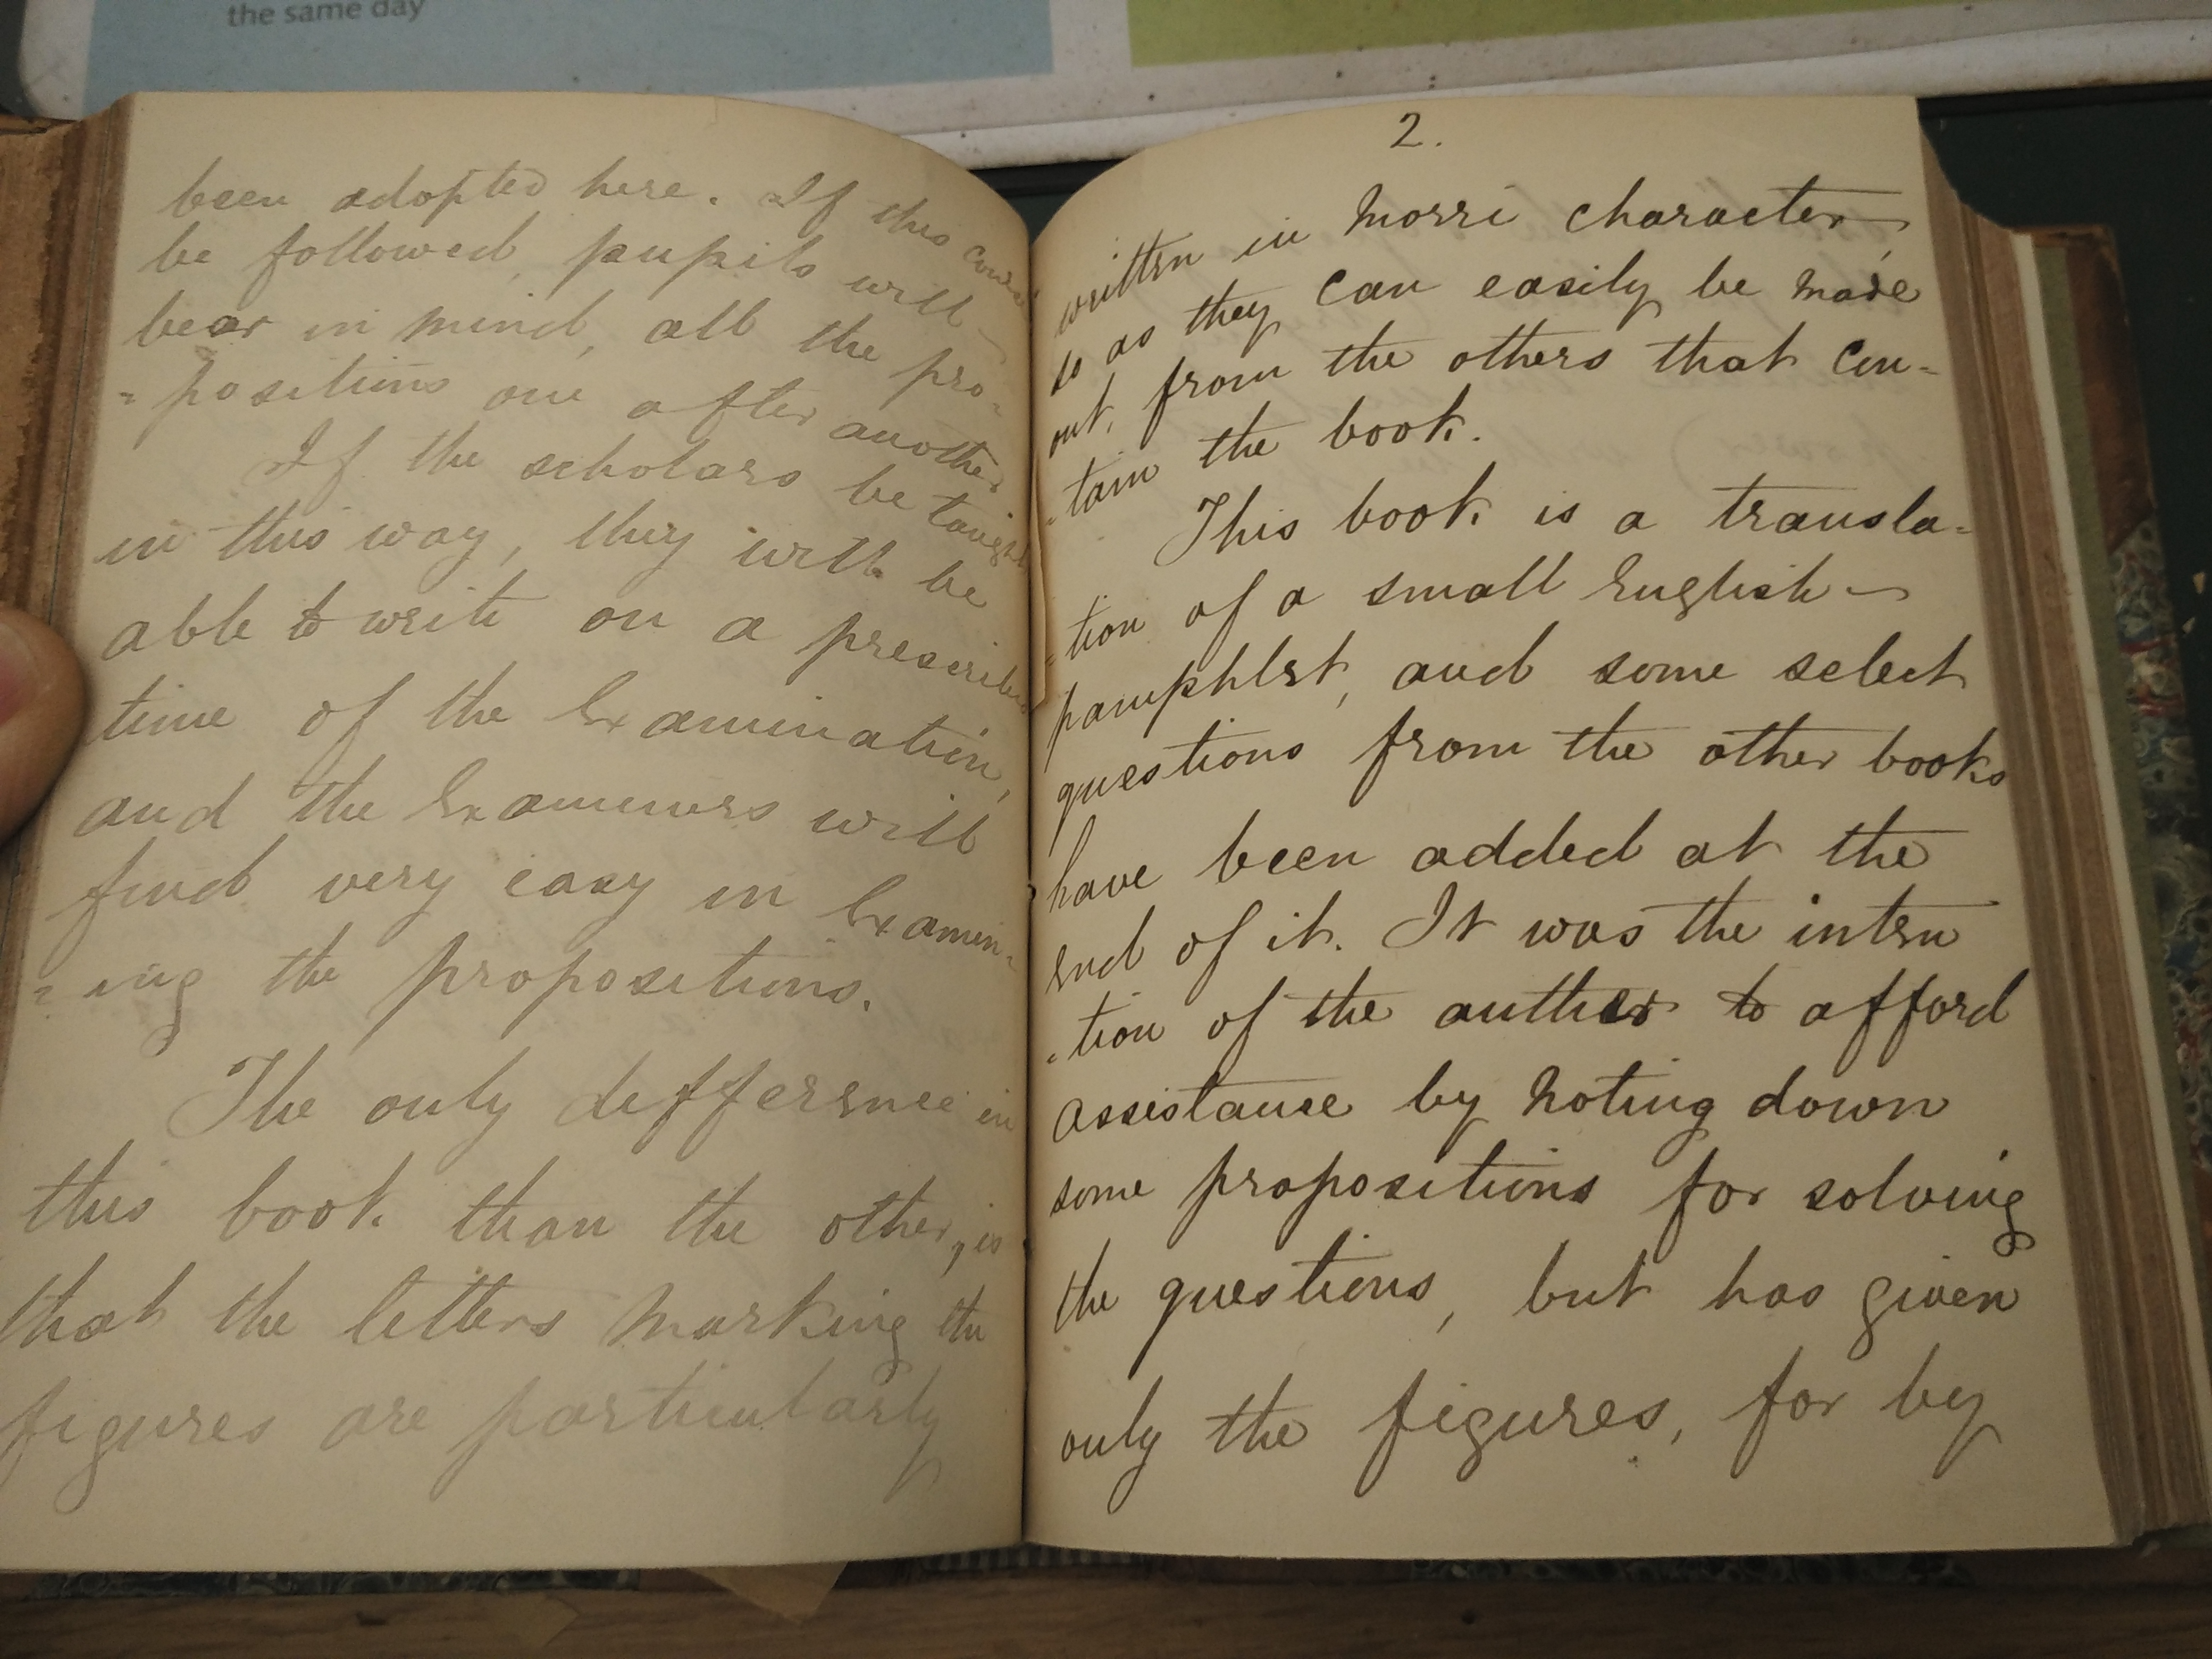 the same day
been adopted here. If this
be followed, pupils will
bear in mind, all the pro-
=positions one after another
If the scholars be taught
in this way, they will be
able to write on a prescribed
time of the Examination,
and the Examiners will
find very easy in Examin-
=ing the propositions.
The only defference in
this book than the other, is
that the letters marking the
figures are particularly
2.
written in Morri character,
so as they can easily be made
out, from the others that con-
-tain the book.
This book is a transla-
-tion of a small English
pamphlet, and some select
questions from the other books
have been added at the
end of it. It was the inten
-tion of the auther to afford
assistance by noting down
some propositions for solving
the questions, but has given
only the figures, for by